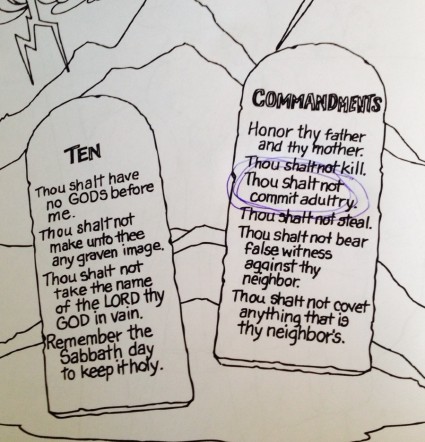 TEN
Thou shalt have
no GODS before
me.
Thou shalt not
make unto thee
any graven image.
Thou shalt not
take the name
of the LORD thy
GOD in vain.
Remember the
Sabbath day
to keep it holy.
COMMANDMENTS
Honor thy father
and thy mother.
Thou shalt not kill.
Thou shalt not
commit adultry.
Thou shalt not steal.
Thou shalt not bear
false witness
against thy
neighbor.
Thou shalt not covet
anything that is
thy neighbor's.